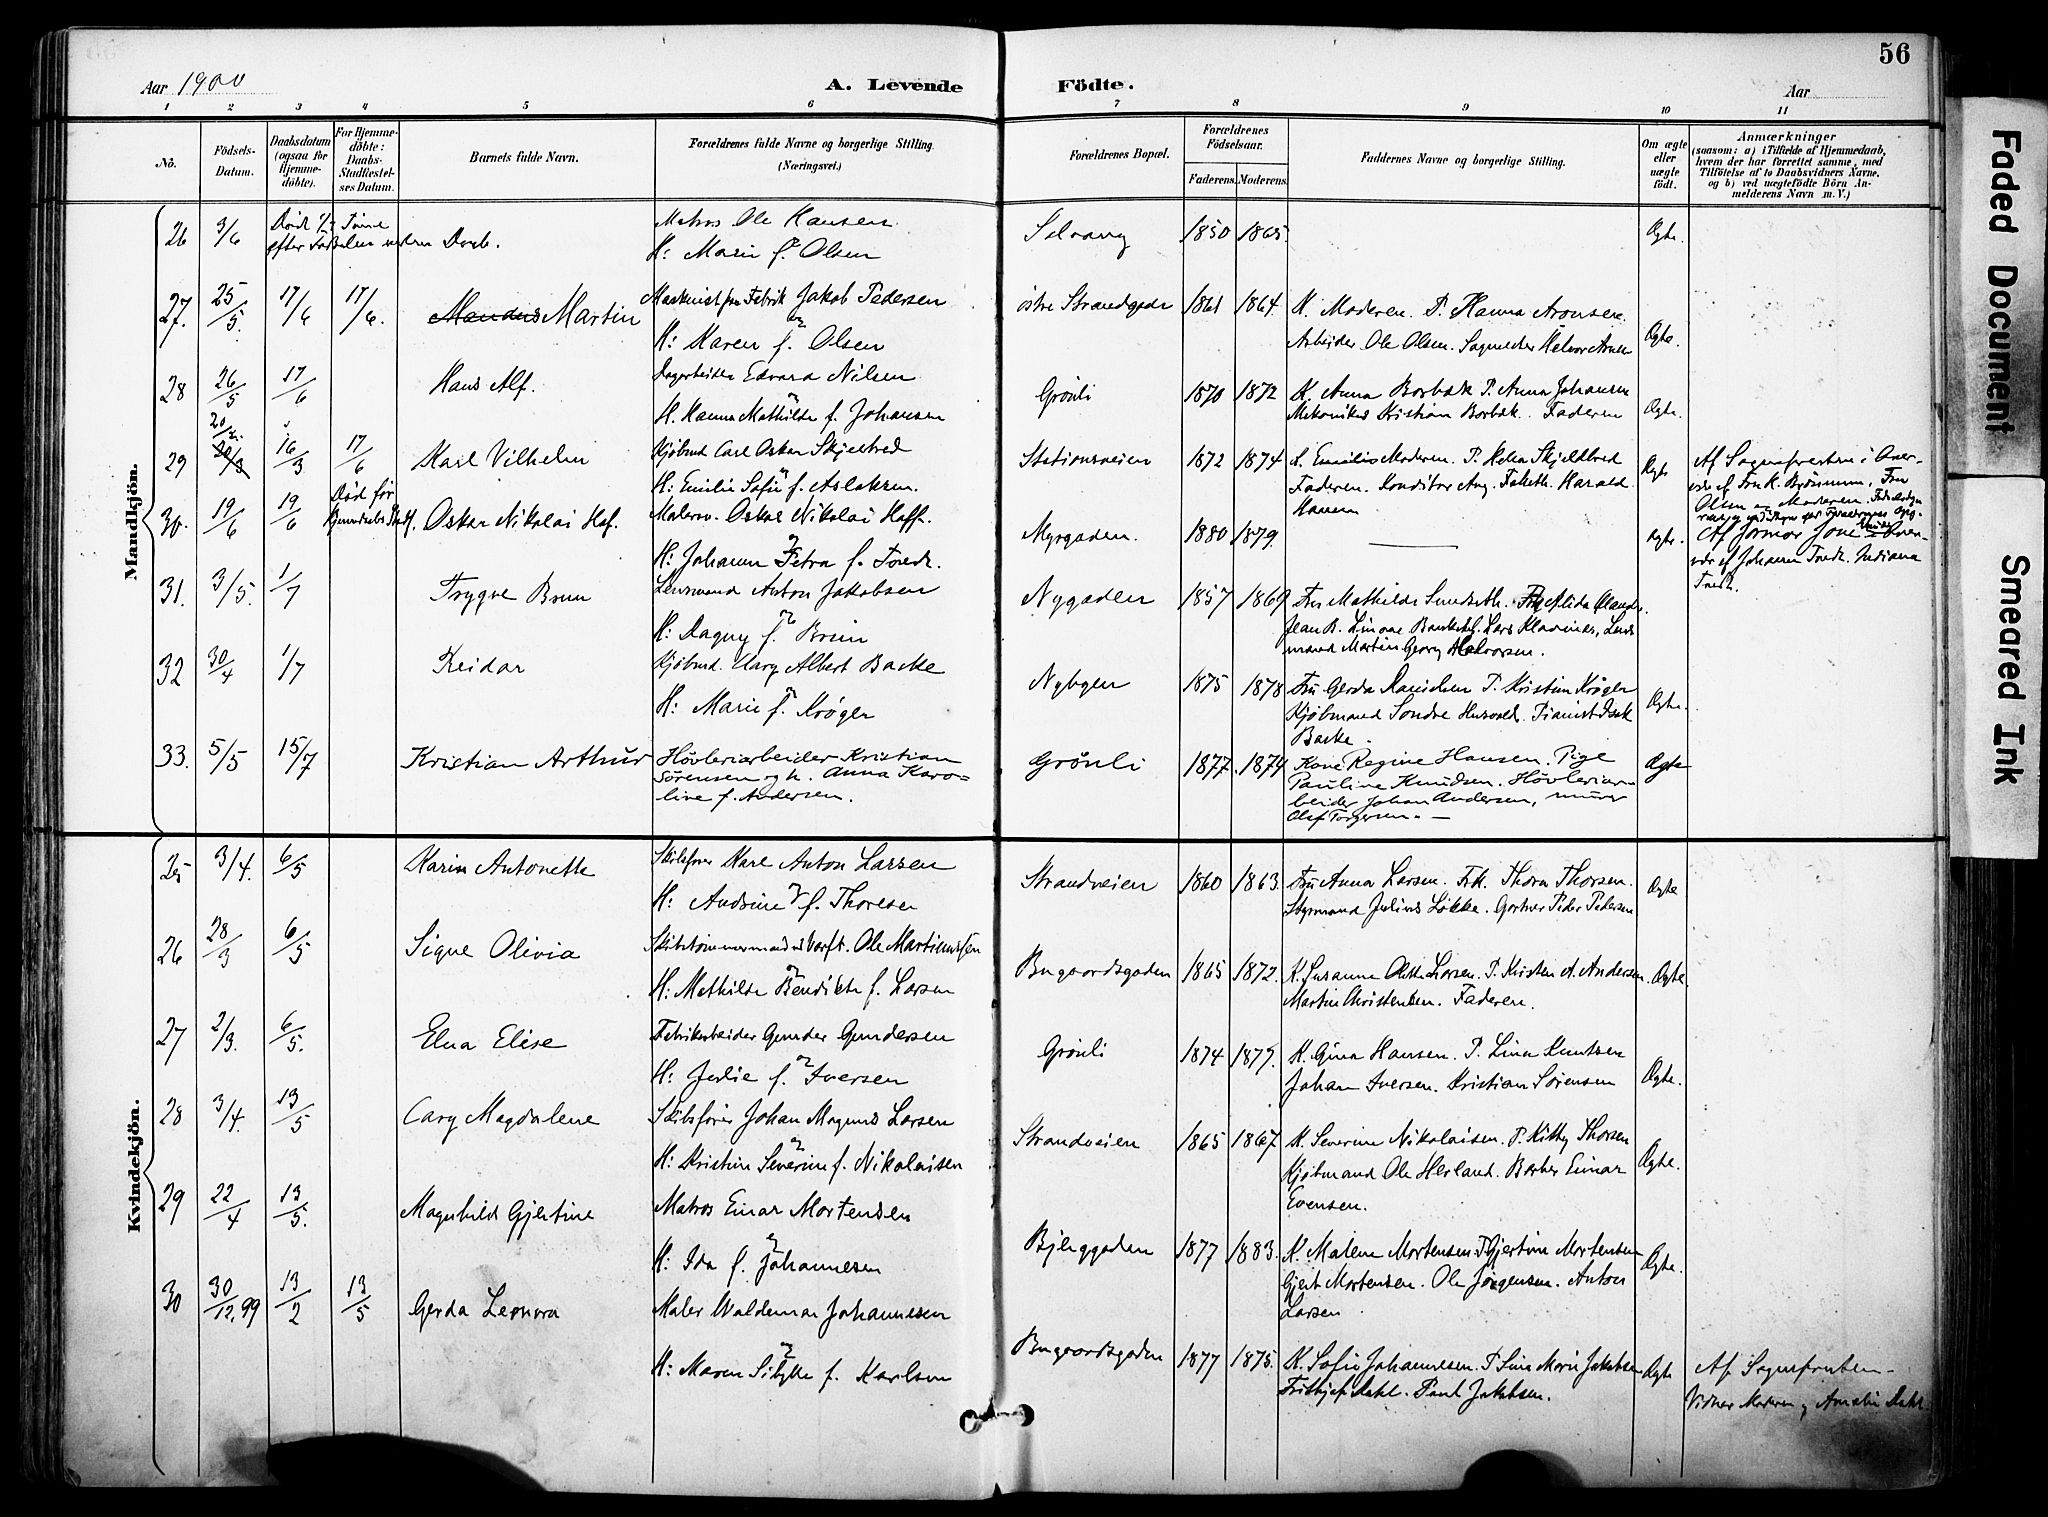 56
Aar 1900
A. Levende
Födte.
Aar
1 2 3 4 5 6 7 8 9 10 11
No.
Födsels-Datum.
Daabsdatum (ogsaa for Hjemme-döbte).
For Hjemme-döbte: Daabs-Stadfæstel-ses Datum.
Barnets fulde Navn.
Forældrenes fulde Navne og borgerlige Stilling. (Næringsvei.)
Forældrenes Bopæl.
Forældrenes Födselsaar.
Faderens. Moderens.
Faddernes Navne og borgerlige Stilling.
Om ægte eller uægte födt.
Anmærkninger
(saasom: a) i Tilfælde af Hjemmedaab, hvem der har forrettet samme, med Tilföielse af to Daabsvidners Navne, og b) ved uægtefödte Börn An-melderens Navn m. V.)
Mandkjön.
26 3/6 Död efter Daab. Matros Ole Hansen
H: Marie f. Olsen
Selvang 1850 1865 Ægte.
27. 25/5. 17/6 17/6. Martin Maskinist Fabrik Jakob Pedersen
H: Karen f. Olsen
östre Strandgade 1861 1864. K. Moderen. P. Hanna Aronsen.
Arbeider Ole Olsen. Ægte.
28 26/5 17/6 Hans Alf. Edvard Nilsen
H. Hanna Mathilde f. Johansen
Grönli 1870 1872 K. Anna Borbæk P. Anna Johansen
Mekaniker Kristian Borbæk. Faderen Ægte.
29 16/3 17/6 Karl Vilhelm Kjöbmd Carl Oskar Skjelbred
H: Emilie Sofie f. Aslaksen.
Stationsveien 1872 1874 K. Emilie Moderen. P. Helen Skjeldbred
Faderen. Konditor Aug. Harald
Hansen Ægte
30. 19/6 19/6 Död för Oskar Nikolai Haf. Malersv. Oskar Nikolai Haff.
H: Johanne Petra f.
Myrgaden. 1880 1879. — Ægte.
31. 3/5. 1/7 Trygve Bruun Lensmand Anton Jakobsen
H: Dagny f. Bruun
Nygaden 1857 1869 Fru Mathilde
mand Martin Georg Halvorsen.
32 30/4 1/7 Reidar Kjöbmd. Albert Backe
H: Marie f. Kröger
Nybyen 1875 1878 Fru Gerda P. Kristine Kröger
Kjöbmand Sondre Pianist
Backe. Ægte.
33. 5/5 15/7 Kristian Arthur Hövleriarbeider Kristian
Sörensen og h. Anna Karo-
line f. Andersen.
Grönli 1877. 1874 Kone Regine Hansen. Pige
Pauline Knudsen. Hövleriar-
beider Johan Andersen, murer
Olaf Torgersen. — Ægte
Kvindekjön.
25 3/4. 6/5 Karin Antonette Skibsförer Karl Anton Larsen
H: Andrine f. Thoresen
Strandveien 1860 1863. Fru Anna Larsen. Frk. Thora Thorsen.
Styrmand Julius Lökke. Gartner Peder Pedersen Ægte
26 28/3 6/5 Signe Olivia Skibstömmermand Ole Martiniussen
H: Mathilde Bendikte f. Larsen
Bugaardsgaden 1865 1872. K. Susanne Olette Larsen. P. Kristen A. Andersen.
Martin Christensen. Faderen. Ægte.
27 2/3. 6/5. Elna Elise Fabrikarbeider Gunder Gundersen
H: Julie f. Iversen
Grönli 1874 1879. K. Gina Hansen. P. Lina Knutsen
Johan Iversen. Kristian Sörensen Ægte.
28 3/4. 13/5 Cary Magdalene Skibsförer Johan Magnus Larsen
H: Kristine Severine f. Nikolaisen
Strandveien 1865 1867 K. Severine Nikolaisen. P. Kitty Thorsen
Kjöbmand Ole Herland. Barber Einar
Evensen. Ægte.
29 22/4 13/5. Magnhild Gjertine Matros Einar Mortensen
H: Ida f. Johannesen
Bjeggaden 1877 1883. K. Malene Mortensen. P. Gjertine Mortensen
Gjert Mortensen. Ole Jörgensen. Anton
Larsen Ægte.
30 30/12.99 13/2 13/5 Gerda Leonora Maler Waldemar Johannesen
H: Maren f. Karlsen
Bugaardsgaden 1877 1875. K. Sofie Johannesen. P. Sina Marie Jakobsen
Frithjof Dahl. Paul Jakobsen. Ægte
Af Sognepresten.
Vidner Moderen og Amalie Dahl.
Faded Document
Smeared Ink